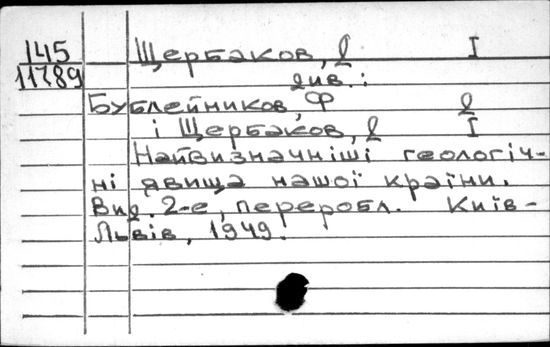 145
11789
Щербаков, Д I
див.:
Бублейников, Ф Д
і Щербаков, Д I
Найвизначніші геологіч-
ні явища нашої країни.
Вид. 2-е, переробл. Київ-
Львів, 1949.